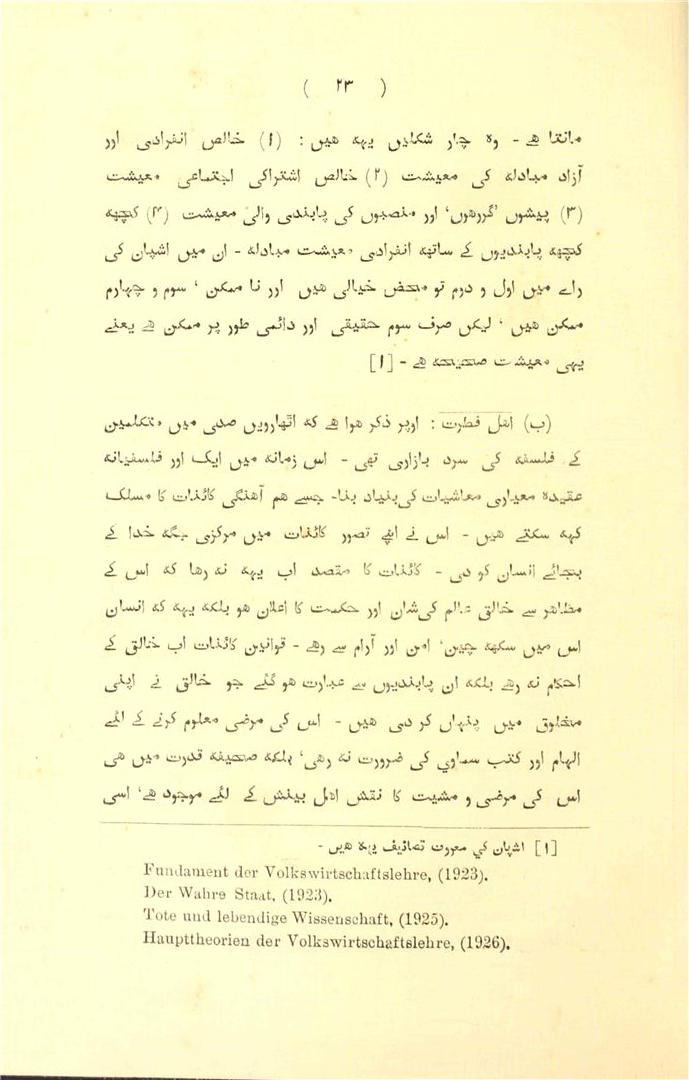 ( ۲۳ )
مانتا ھے - وہ چار شکلیں یہہ ھیں : (۱) خالص انفرادی اور
آزاد مبادلہ کی معیشت (۲) خالص اشتراکی اجتماعی معیشت
(۳) پیشوں ’گروھوں‘ اور منصبوں کی پابندی والی معیشت (۴) کچھہ
کچھہ پابندیوں کے ساتھہ انفرادی معیشت مبادلہ - ان میں اشپان کی
راے میں اول و دوم تو محض خیالی ھیں اور نا ممکن ‘ سوم و چہارم
ممکن ھیں ‘ لیکن صرف سوم حقیقی اور دائمی طور پر ممکن ھے یعنے
یہی معیشت صحیحہ ھے - [۱]
(ب) اھل فطرت : اوپر ذکر ھوا ھے کہ اتھارویں صدی میں متکلمین
کے فلسفہ کی سرد بازاری تھی - اس زمانہ میں ایک اور فلسفیانہ
عقیدہ معیاری معاشیات کی بنیاد بنا- جسے ھم آھنگی کائنات کا مسلک
کہہ سکتے ھیں - اس نے اپنے تصور کائنات میں مرکزی جگہ خدا کے
بجائے انسان کو دی - کائنات کا مقصد اب یہہ نہ رھا کہ اس کے
مظاھر سے خالق عالم کی شان اور حکمت کا اعلان ھو بلکہ یہہ کہ انسان
اس میں سکھہ چین‘ امن اور آرام سے رھے - قوانین کائنات اب خالق کے
احکام نہ رھے بلکہ ان پابندیوں سے عبارت ھو گئے جو خالق نے اپنی
مخلوق میں پنہاں کر دی ھیں - اس کی مرضی معلوم کرنے کے لئے
الہام اور کتب سماوی کی ضرورت نہ رھی‘ بلکہ صحیفہ قدرت میں ھی
اس کی مرضی و مشیت کا نقش اھل بینش کے لئے موجود ھے‘ اسی
[۱] اشپان کي معروف تصانیف یہہ ھیں -
Fundament der Volkswirtschaftslehre, (1923).
Der Wahre Staat, (1923).
Tote und lebendige Wissenschaft, (1925).
Haupttheorien der Volkswirtschaftslehre, (1926).